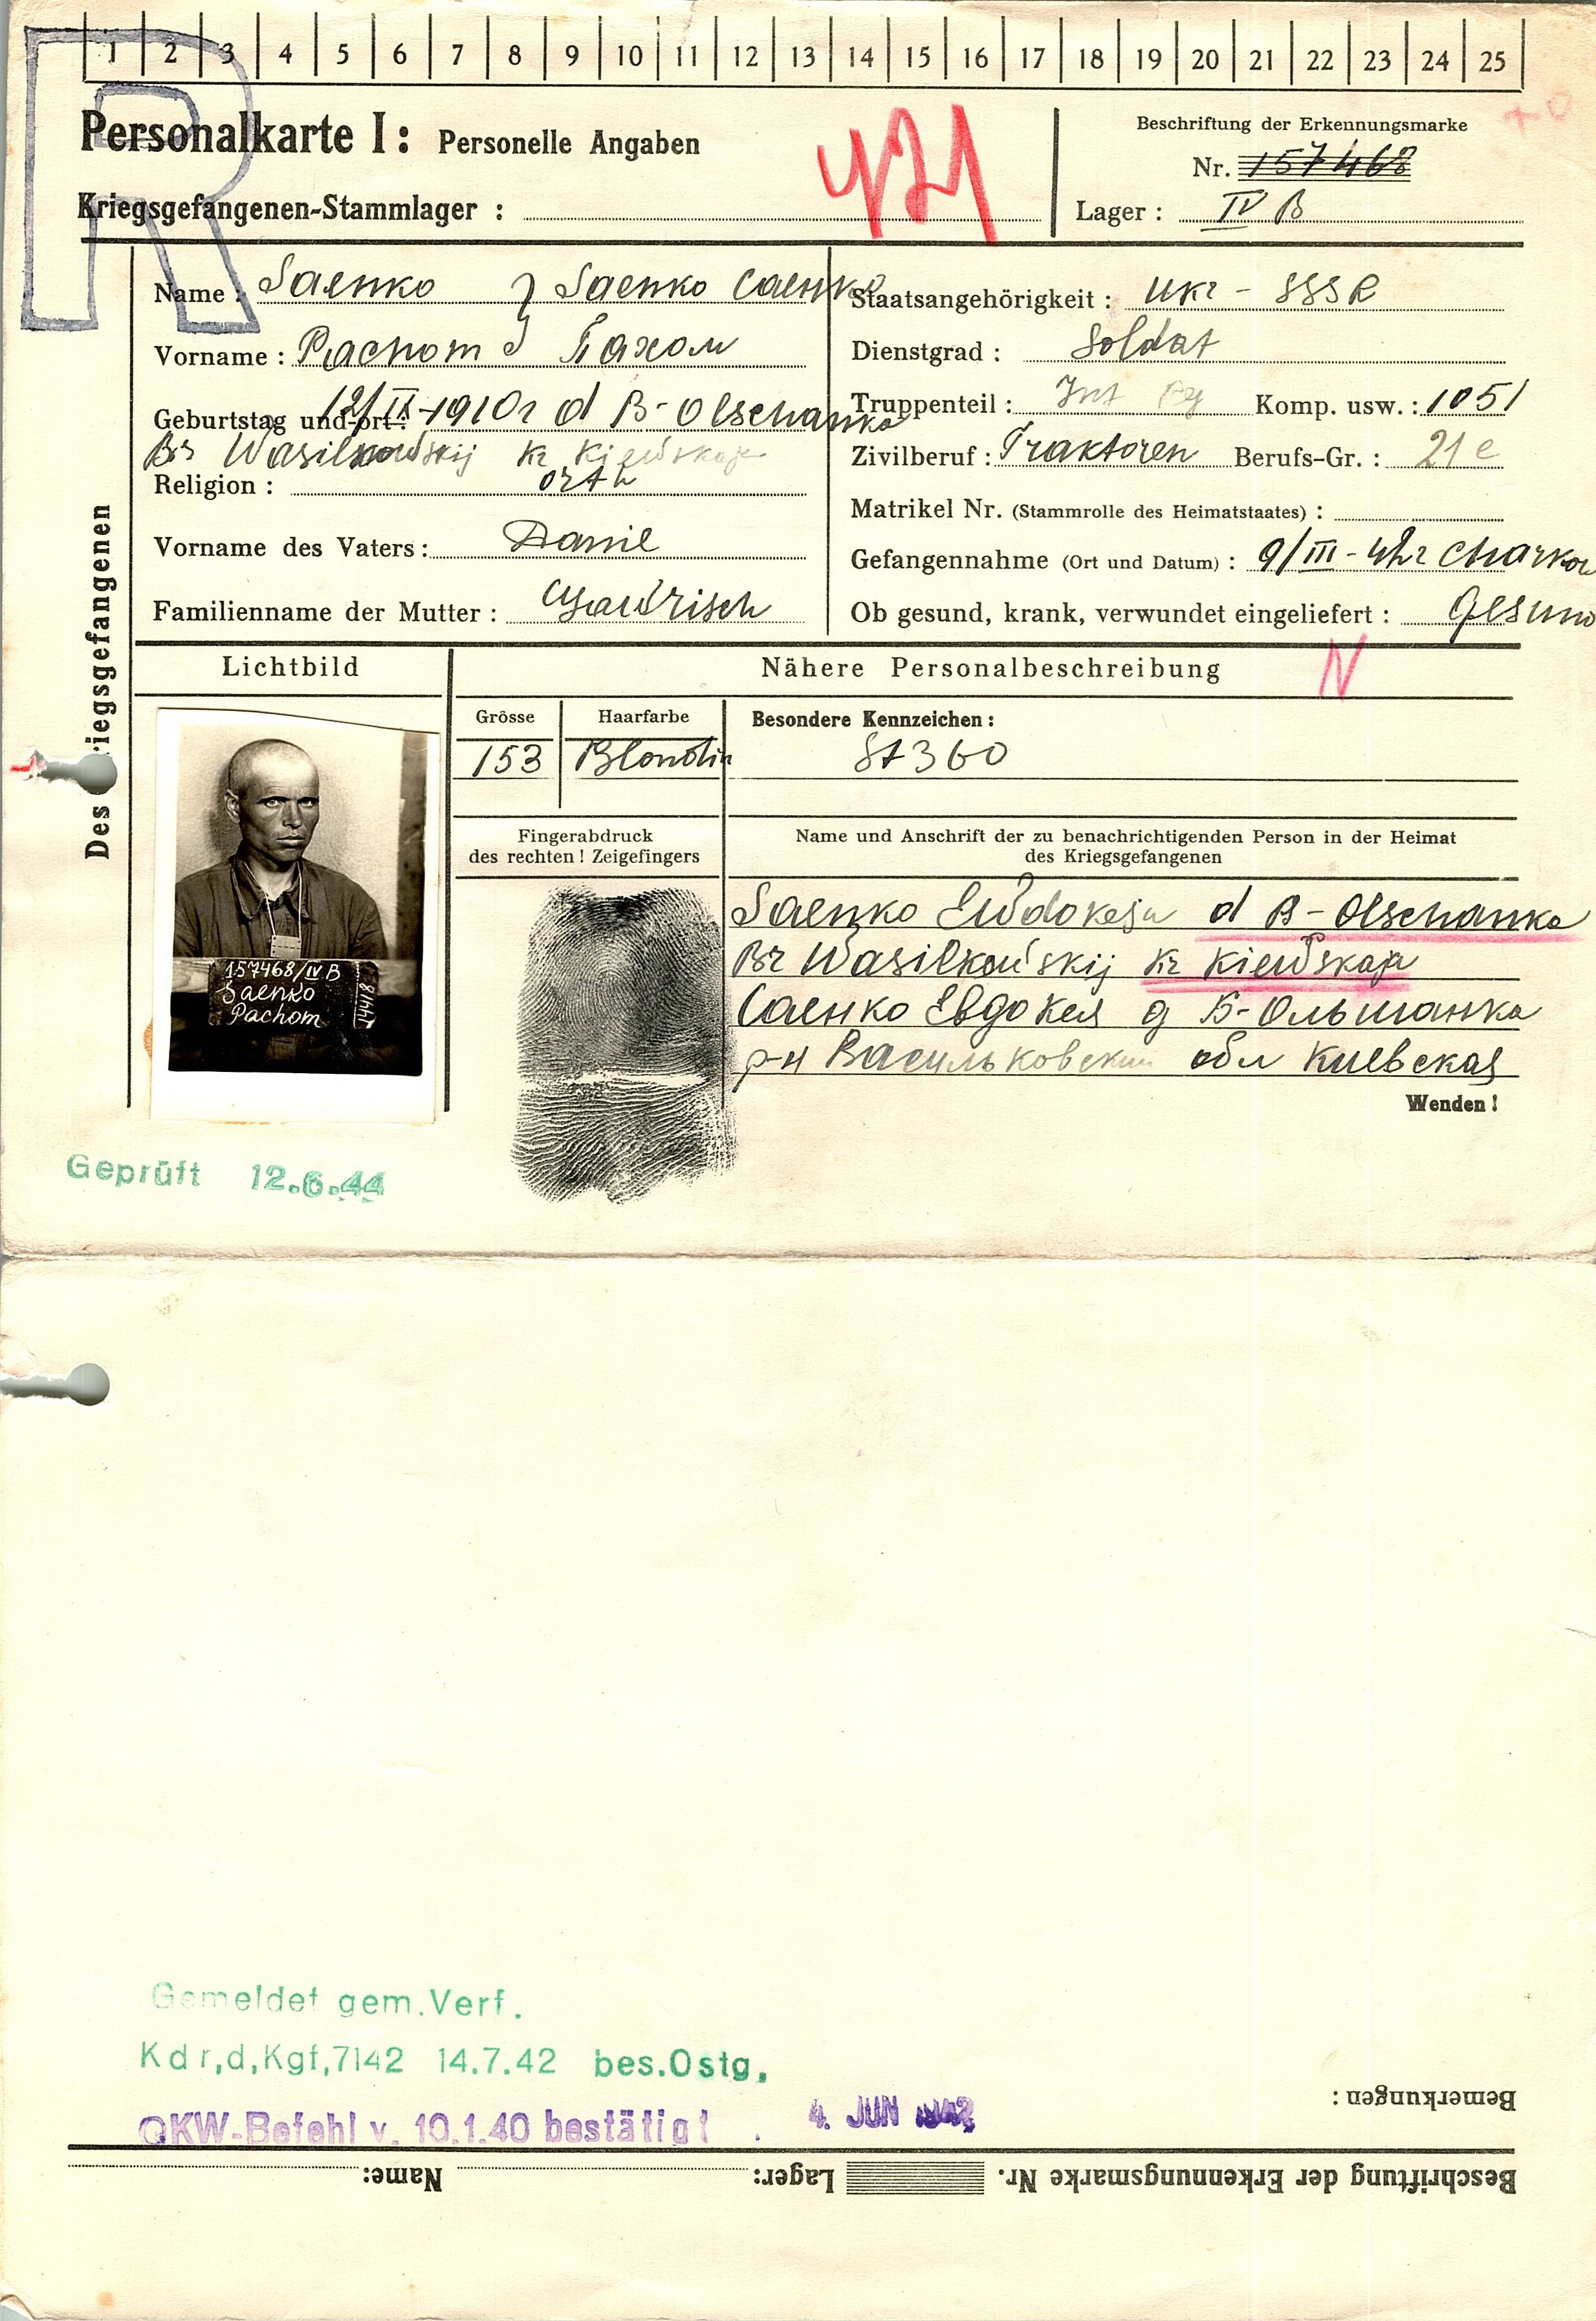 1 2 3 4 5 6 7 8 9 10 11 12 13 14 15 16 17 18 19 20 21 22 23 24 25
R
Personalkarte I: Personelle Angaben
421
Beschriftung der Erkennungsmarke
Nr. 157468
Kriegsgefangenen-Stammlager :
Lager : IV B
Des Kriegsgefangenen
Name : Saenko } Saenko Саенко
Vorname : Pachom } Пахом
Geburtstag und -ort: 12/IX-1910г d B-Olschanka
Br Wasilkowskij Kr Kiewskaja
Religion : orth
Vorname des Vaters: Danil
Familienname der Mutter :
Staatsangehörigkeit : Ukr - SSSR
Dienstgrad : Soldat
Truppenteil : Inf Rg Komp. usw. : 1051
Zivilberuf : Traktoren Berufs-Gr. : 21 e
Matrikel Nr. (Stammrolle des Heimatstaates) :
Gefangennahme (Ort und Datum) : 9/III-42г Charkow
Ob gesund, krank, verwundet eingeliefert : Gesund
Lichtbild
Nähere Personalbeschreibung
N
Grösse
153
Haarfarbe
Blondin
Besondere Kennzeichen :
St 360
157468/IV B
Saenko
Pachom
Fingerabdruck
des rechten ! Zeigefingers
Name und Anschrift der zu benachrichtigenden Person in der Heimat
des Kriegsgefangenen
Saenko Ewdokeja d B-Olschanka
Br Wasilkowskij Kr Kiewskaja
Саенко Евдокея д Б-Ольшанка
р-н Васильковский обл Киевская
Wenden !
Geprüft 12.6.44
Gemeldet gem. Verf.
Kdr,d,Kgf,7142 14.7.42 bes.Ostg.
OKW-Befehl v. 10.1.40 bestätigt . 4. JUN 1942
Bemerkungen :
Beschriftung der Erkennungsmarke Nr. Lager: Name: